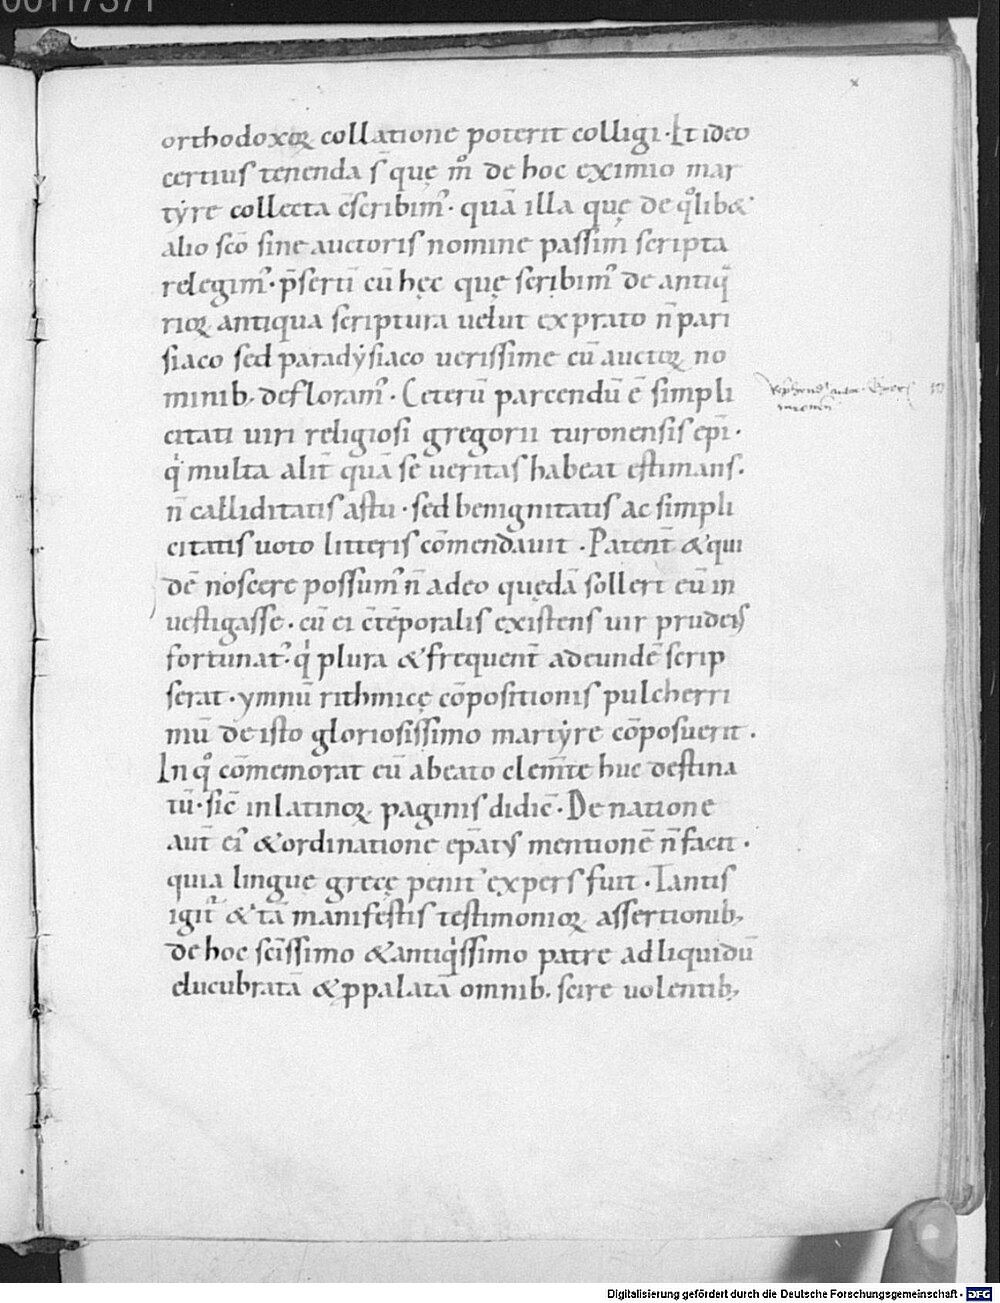 orthodoxoꝝ collatione poterit colligi · Et ideo
certius tenenda s̄ quę m̊ de hoc eximio mar
tẏre collecta c̄scribim᷒ · quā illa quę de q̊lib&
alio sc̄o sine auctoris nomine passim scripta
relegim᷒ · p̄serti̅ cū hęc quę scribim᷒ de antiq̄
rioꝝ antiqua scriptura uelut ex prato n̄ pari
siaco sed paradẏsiaco uerissime cū auctoꝝ no
minib; defloram᷒ · Ceterū parcendū ē simpli
citati uiri religiosi gregorii turonensis ep̄i ·
q̍ multa alit̄ quā se ueritas habeat estimans ·
n̄ calliditatis astu · sed benignitatis ac simpli
citatis uoto litteris cōmendauit · Patent̄ & qui
dē noscere possum᷒ n̄ adeo quędā sollert̄ eū in
uestigasse · cū ei c̄tēporalis existens uir prudens
fortunat᷒ · q̍ plura & frequent̄ ad eundē scrip
serat · ymnū rithmicę cōpositionis pulcherri
mū de isto gloriosissimo martẏre cōposuerit ·
In q̊ cōmemorat eū a beato clem̄te huc destina
tū · sic̄ in latinoꝝ paginis didic̄ · De natione
aut̄ ei᷒ & ordinatione ep̄at᷒ mentionē n̄ facit ·
quia linguę grecę penit᷒ expers fuit · Tantis
igit̄ & tā manifestis testimonioꝝ assertionib;
de hoc sc̄issimo & antiq̍ssimo patre ad liquidū
elucubratā & ꝓpalatā omnib; scire uolentib;
Digitalisierung gefördert durch die Deutsche Forschungsgemeinschaft · DFG